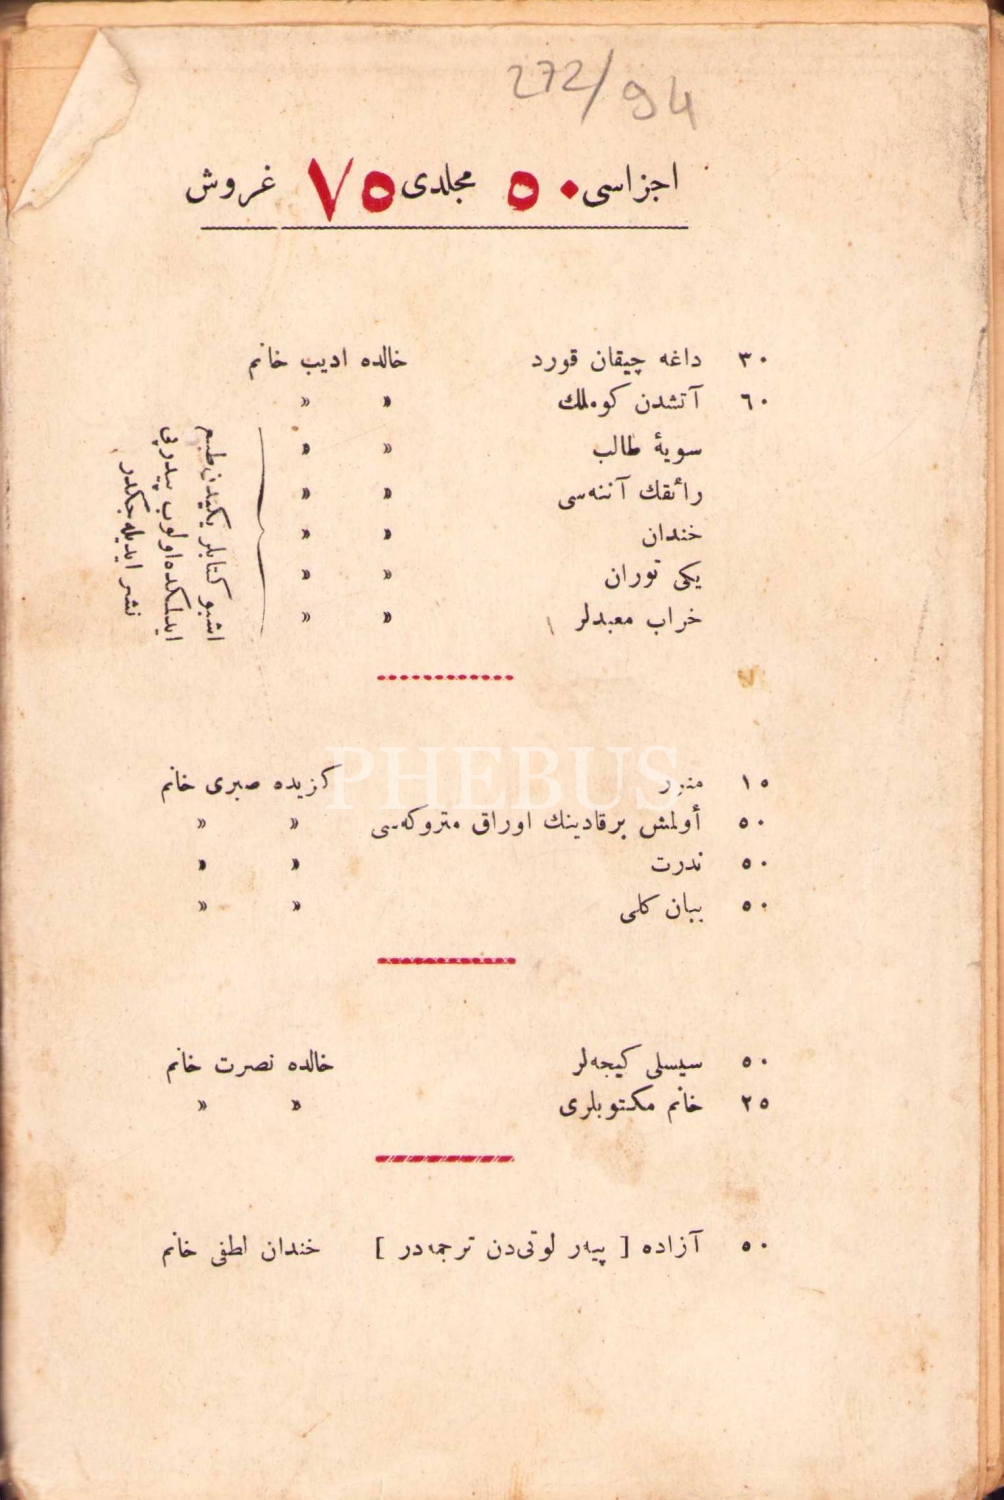 272/94
اجزاسی ٥٠ مجلدی ٧٥ غروش
٣٠ داغه چیقان قورد خالده ادیب خانم
٦٠ آتشدن كوملك » »
سویهٔ طالب » »
رائقك آننه‌سی » »
خندان » »
یكی توران » »
خراب معبدلر » »
اشبو كتابلر یكیدن طبع
ایدلمكده اولوب پیدرپی
نشر ایدیله‌جكدر
PHEBUS
١٥ منور كزیده صبری خانم
٥٠ أولمش برقادینك اوراق متروكه‌سی » »
٥٠ ندرت » »
٥٠ یبان كلی » »
٥٠ سیسلی كیجه‌لر خالده نصرت خانم
٢٥ خانم مكتوبلری » »
٥٠ آزاده [ پیه‌ر لوتی‌دن ترجمه‌در ] خندان لطفی خانم